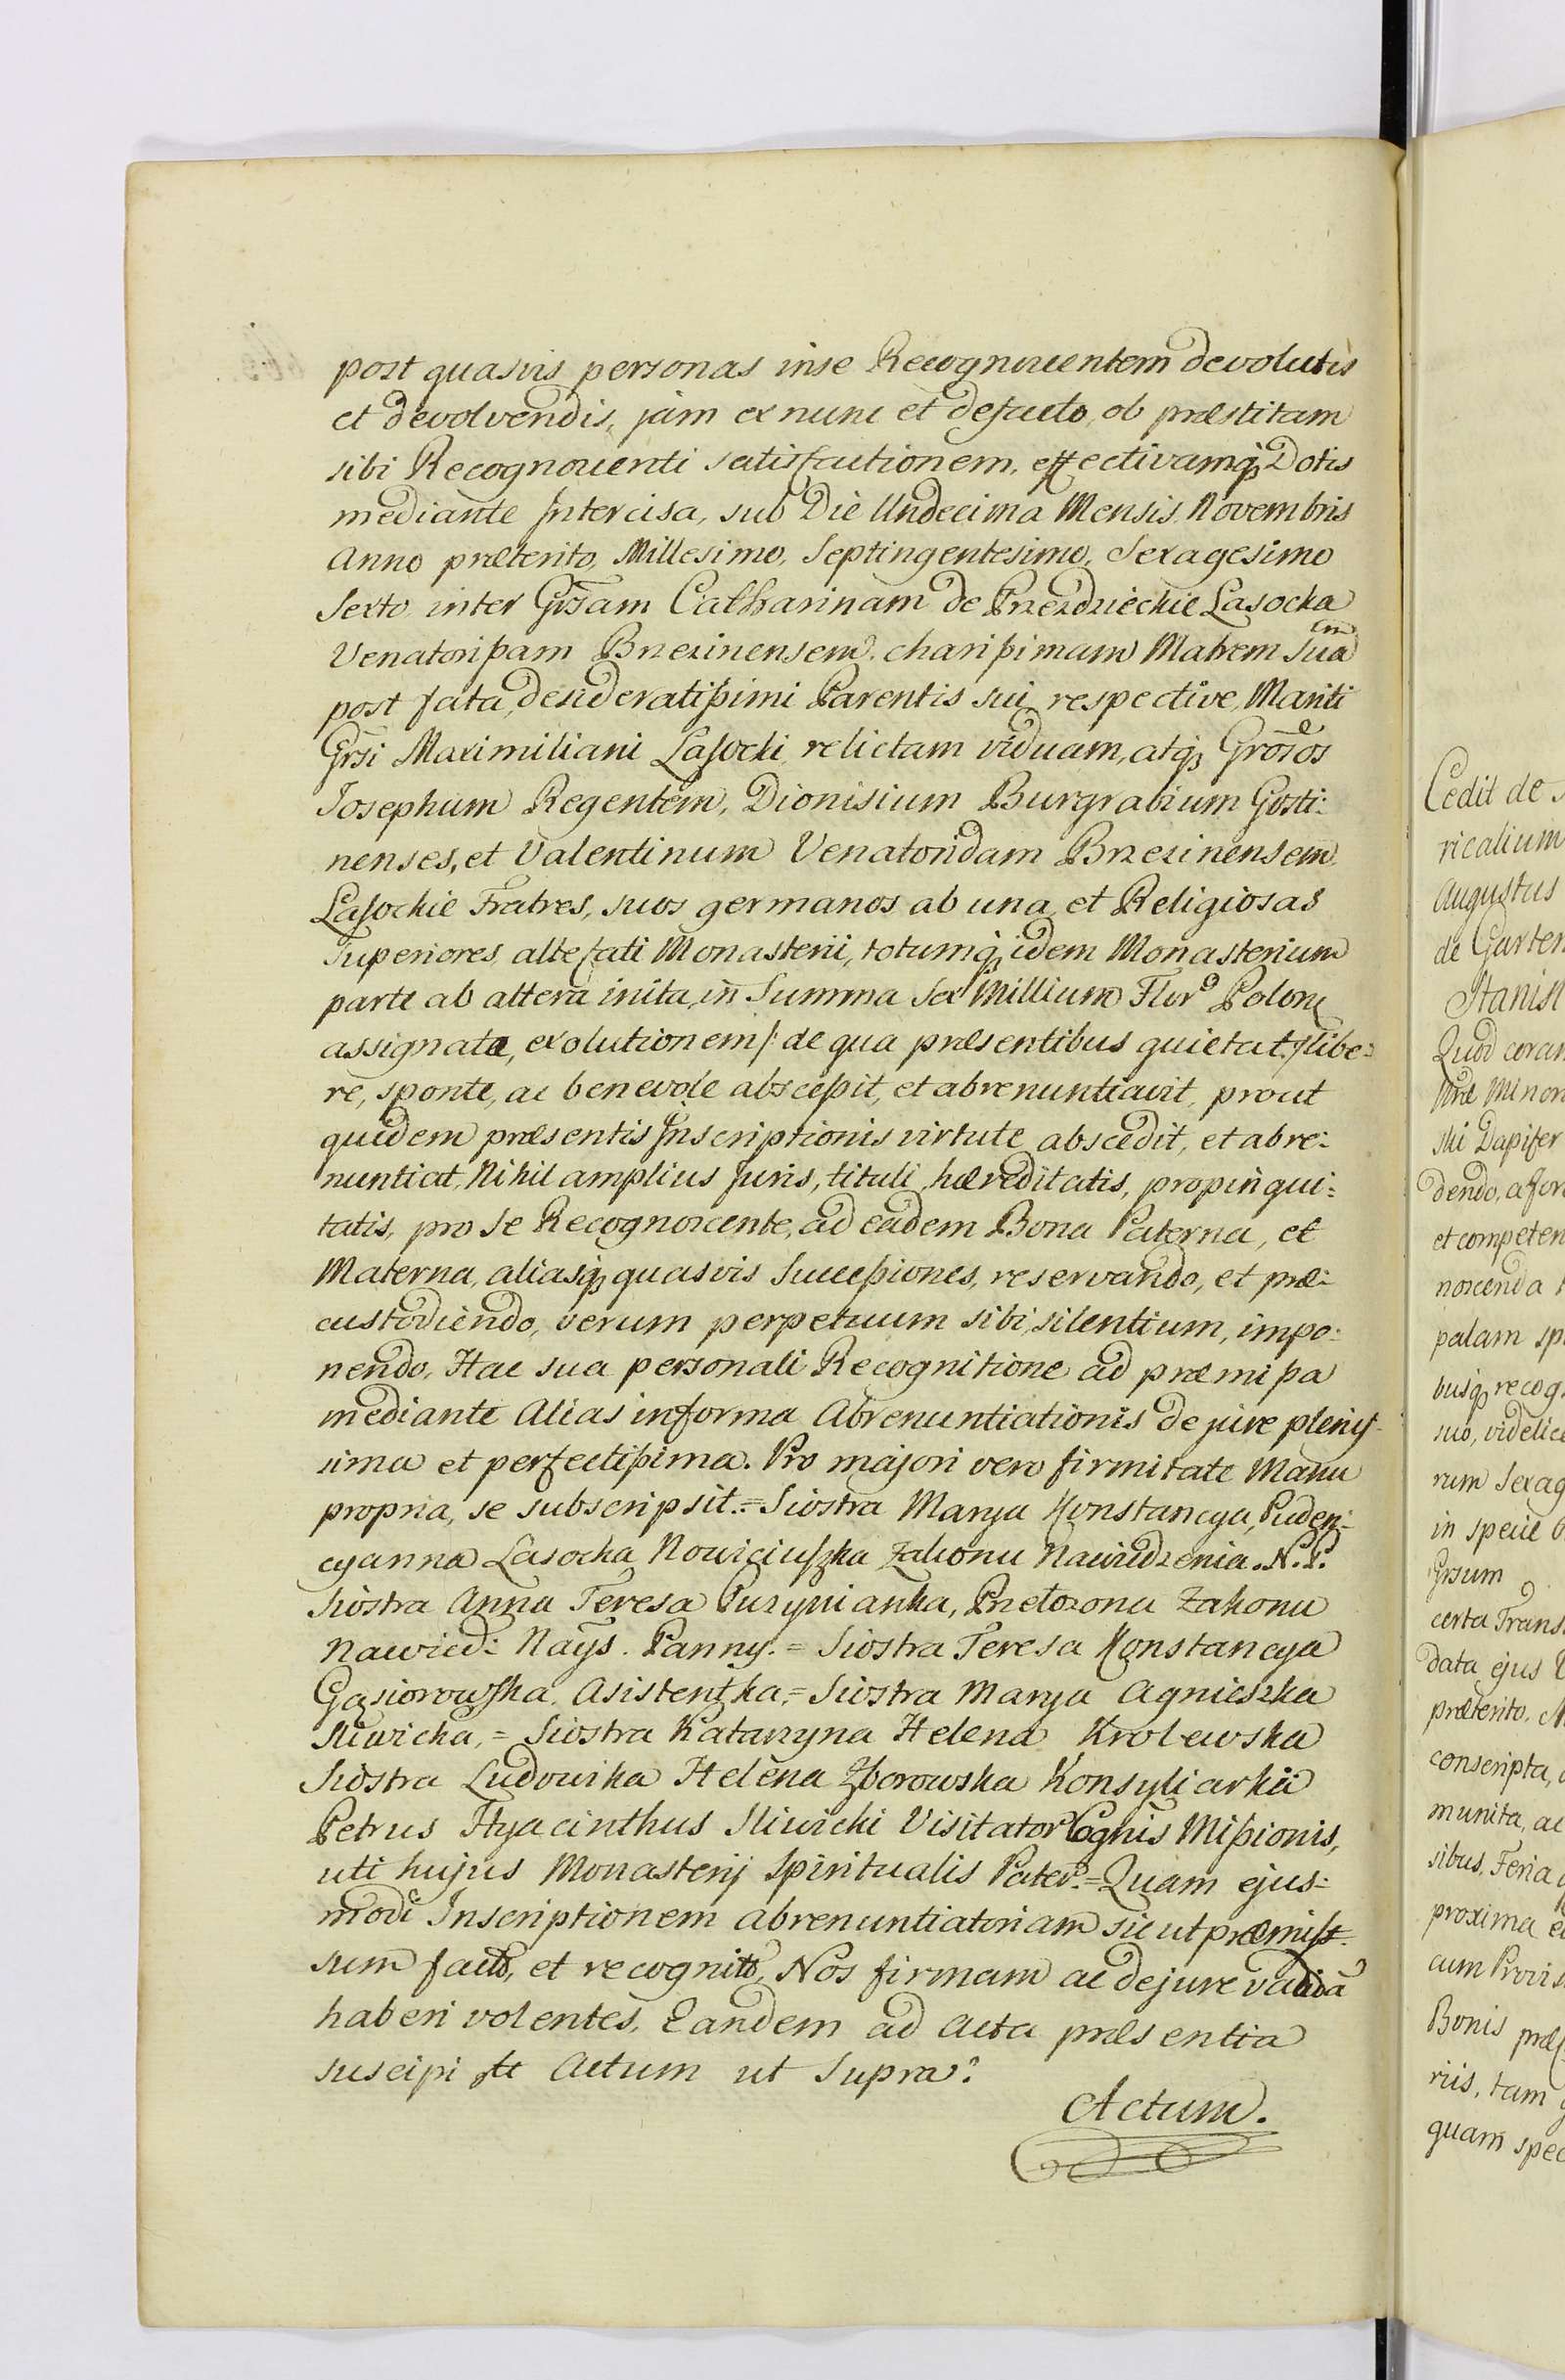 post quasvis personas inse Recognoscentem devolutis
et devolvendis, jam ex nunc et defacto, ob præstitam
sibi Recognoscenti satisfactionem, effectivamq Dotis
mediante Intercisa, sub Die Undecima Mensis Novembris
Anno præterito, Millesimo, Septingentesimo, Sexagesimo
Sexto inter Grsam Catharinam de Przezdzieckie Lasocka
Venatorißam Brzezinensem, charißimam Matrem Suaem
post fata desideratißimi Parentis sui respective Mariti
Grsi Maximiliani Lasocki relictam viduam, atq Grosos
Josephum Regentem, Dionisium Burgrabium Gosti:
nenses, et Valentinum Venatoridam Brzezinensem
Lasockie Fratres, suos germanos ab una et Religiosas
Superiores altefati Monasterii, totumq idem Monasterium
parte ab altera inita, in Summa Sex Millium Flor Polon
assignata, exolutionem /: de qua præsentibus quietat :/ libe:
re, sponte, ac benevole absceßit, et abrenuntiavit, prout
quidem præsentis Inscriptionis virtute abscedit, et abre:
nuntiat, Nihil amplius Juris, tituli, hæreditatis, propinqui:
tatis, pro se Recognoscente, ad eadem Bona Paterna, et
Materna, aliasq quasvis Succeßiones, reservando, et præ:
custodiendo, verum perpetuum sibi silentium, impo:
nendo, Hac sua personali Recognitione ad præmißa
mediante Alias informa Abrenuntiationis de jure plenis
sima et perfectißima. Pro majori vero firmitate Manu
propria, se subscripsit. = Siostra Marya Konstancya, Puden:
cyanna Lasocka Nowiciuszka Zakonu Nawiedzenia N. P.
Siostra Anna Teresa Puzynianka, Przełozona Zakonu
Nawied: Nays. Panny. = Siostra Teresa Konstancya
Gąsiorowska Asistentka, = Siostra Marya Agnieszka
Sliwicka, = Siostra Katarzyna Helena Krolewska
Siostra Ludowika Helena Zborowska Konsyliarki
Petrus Hyacinthus Sliwicki Visitator Cognis Mißionis,
uti hujus Monasterij Spiritualis Pater. = Quam ejus:
modi Inscriptionem abrenuntiatoriam sicut præmiss
sum facto, et recognito, Nos firmam ac dejure valida
haberi volentes, Eandem ad Acta præsentia
suscipi Actum ut Supra.
Actum.
Cedit de
ricalium
Augustus
de Garten
Stanisl
Quod coram
Minor
ski Dapifer
dendo, afor
et competen
noscenda
palam sp
busq recog
suo, videlice
rum Sexag
in specie
Grsum
certa Trans
data ejus
præterito,
conscripta,
munita, ac
sibus, Feria
proxima
cum Provis
Bonis præf
riis, tam
quam spec